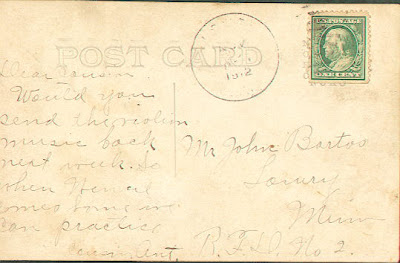 POST CARD
1912
ONE CENT
Dear Cousin
Would you
send the violin
music back
next week. So
when
comes home we
can practice
Ant.
Mr John Bartos
Lowry
Minn
R.F.D. No 2.